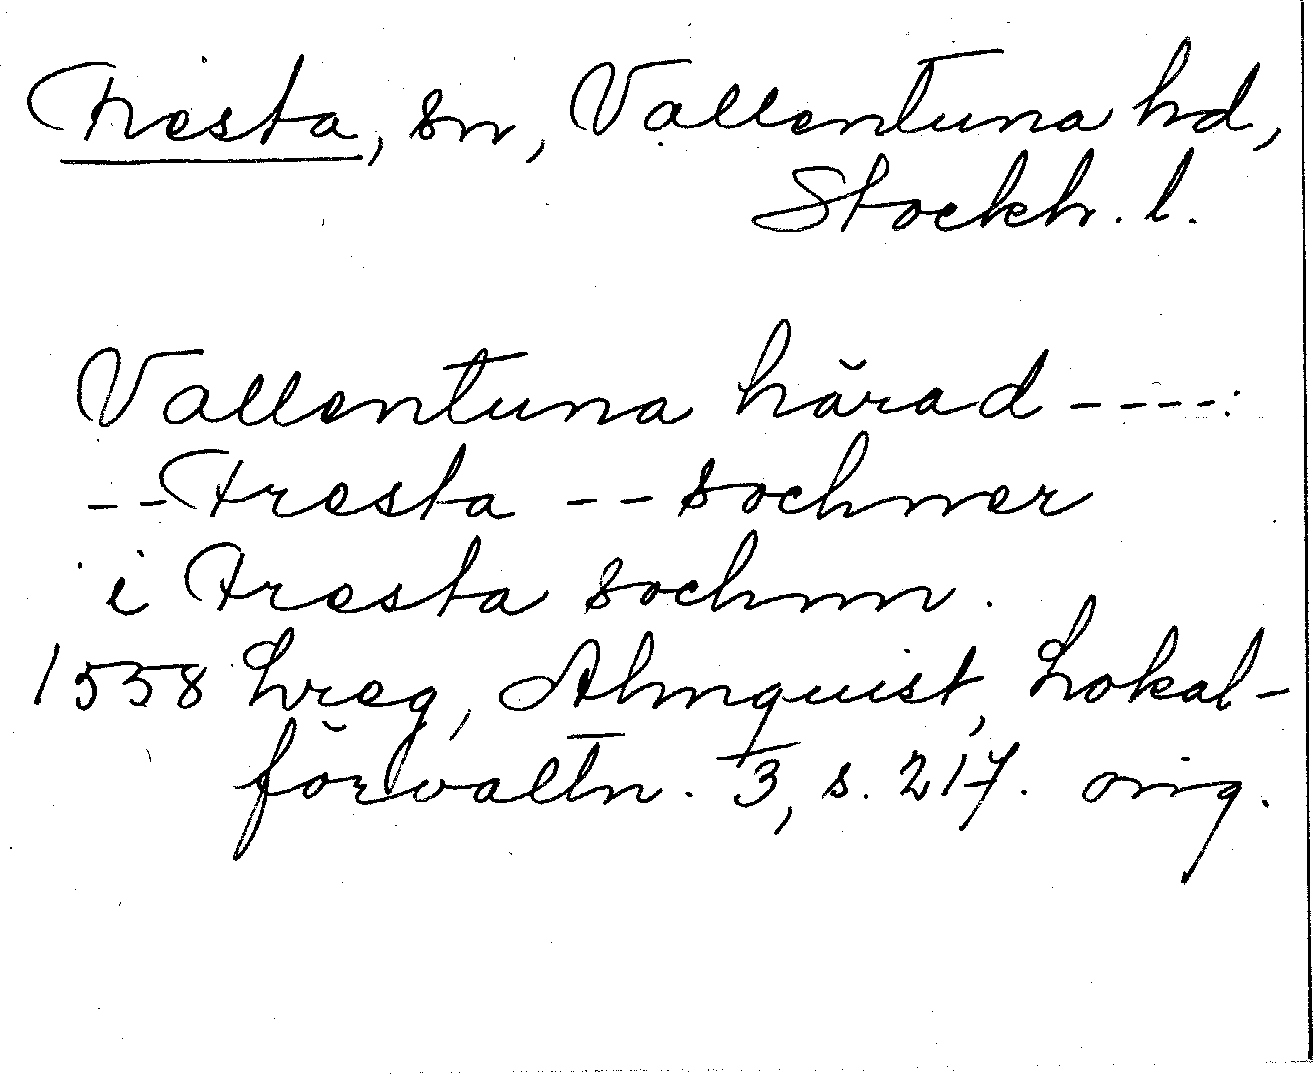 Fresta, sn, Vallentuna hd,
Stockh. l.
Vallentuna härad ----:
-- Fresta -- sochner
i Fresta sochnn.
1558 Lreg, Almquist, Lokal-
förvaltn. 3, s. 217. orig.